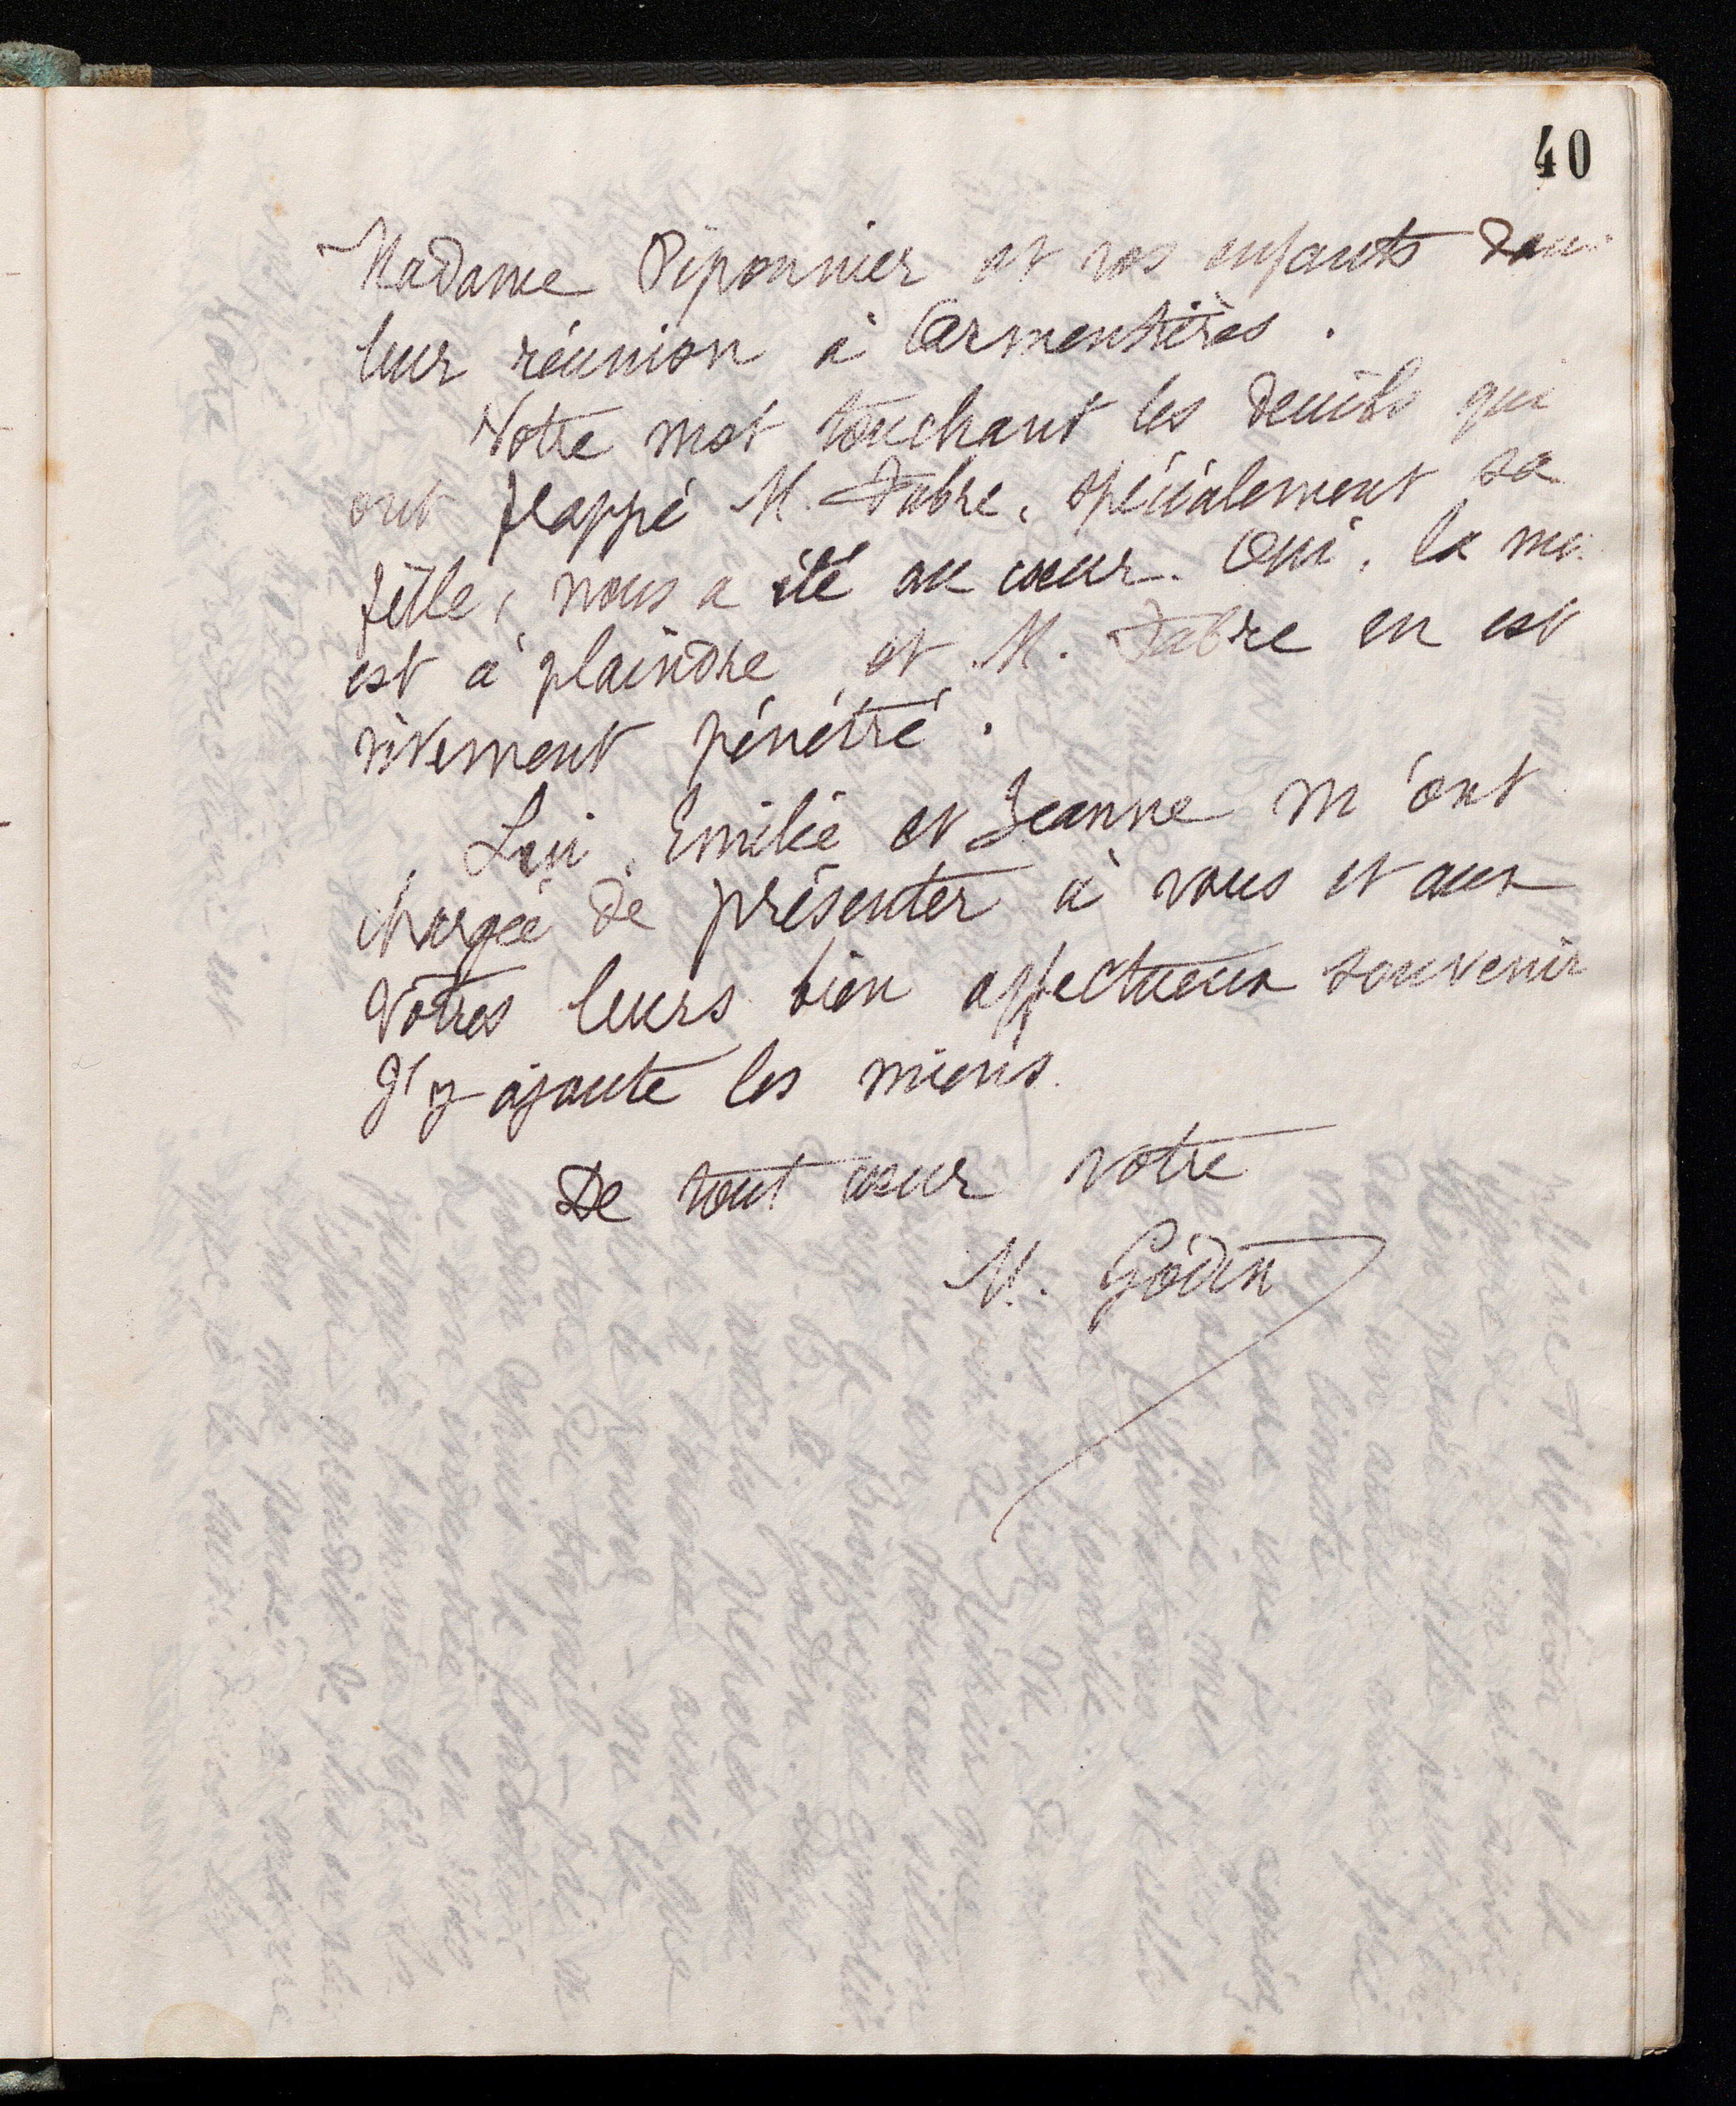 40
Madame Piponnier et vos enfants dans
leur réunion à Armentières.
Votre mot touchant les deuils qui
ont frappé M. Fabre, spécialement sa
fille, nous a été au cœur. Oui, la
est à plaindre et M. Fabre en est
vivement pénétré.
Lui, Emilie et Jeanne m'ont
chargée de présenter à vous et aux
Vôtres leurs bien affectueux souvenir
J'y ajoute les miens.
De tout cœur votre
M. Godin